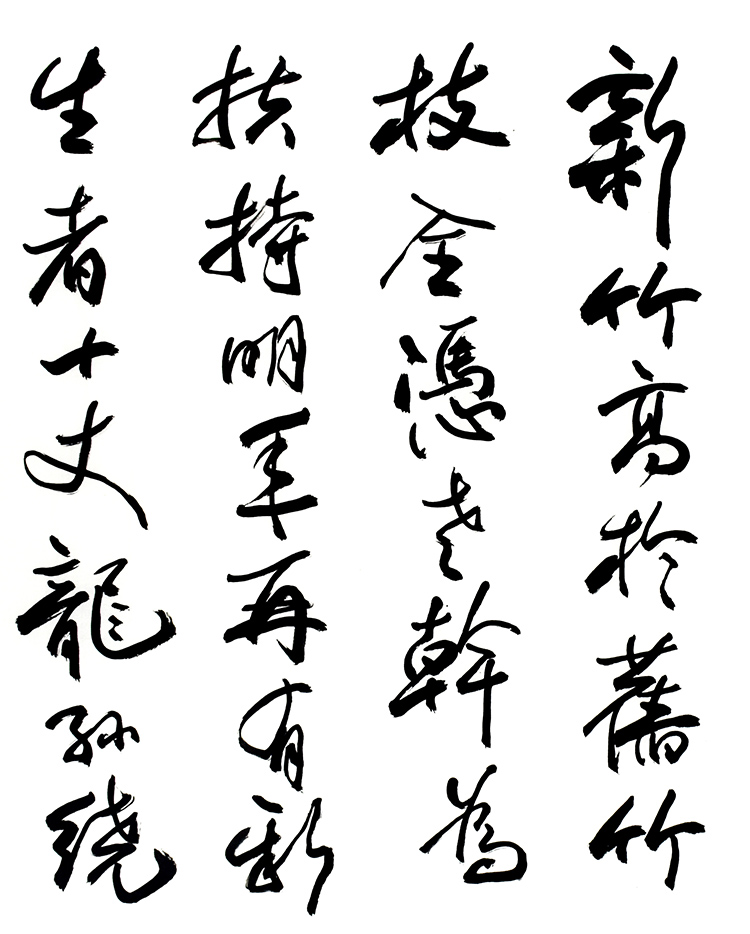 新竹高於舊竹
枝全憑老幹為
扶持明年再有新
生者十丈龍孫繞